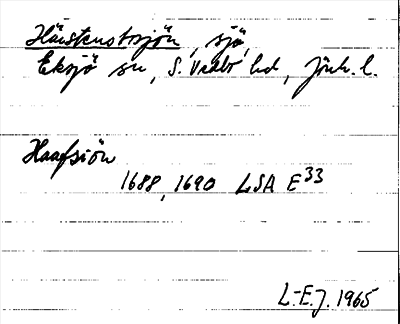 sjö,
Eksjö sn, S. Vedbo hd, Jönk. l.
Haafsiön
1688, 1690 LSA E33
L-E.J. 1965